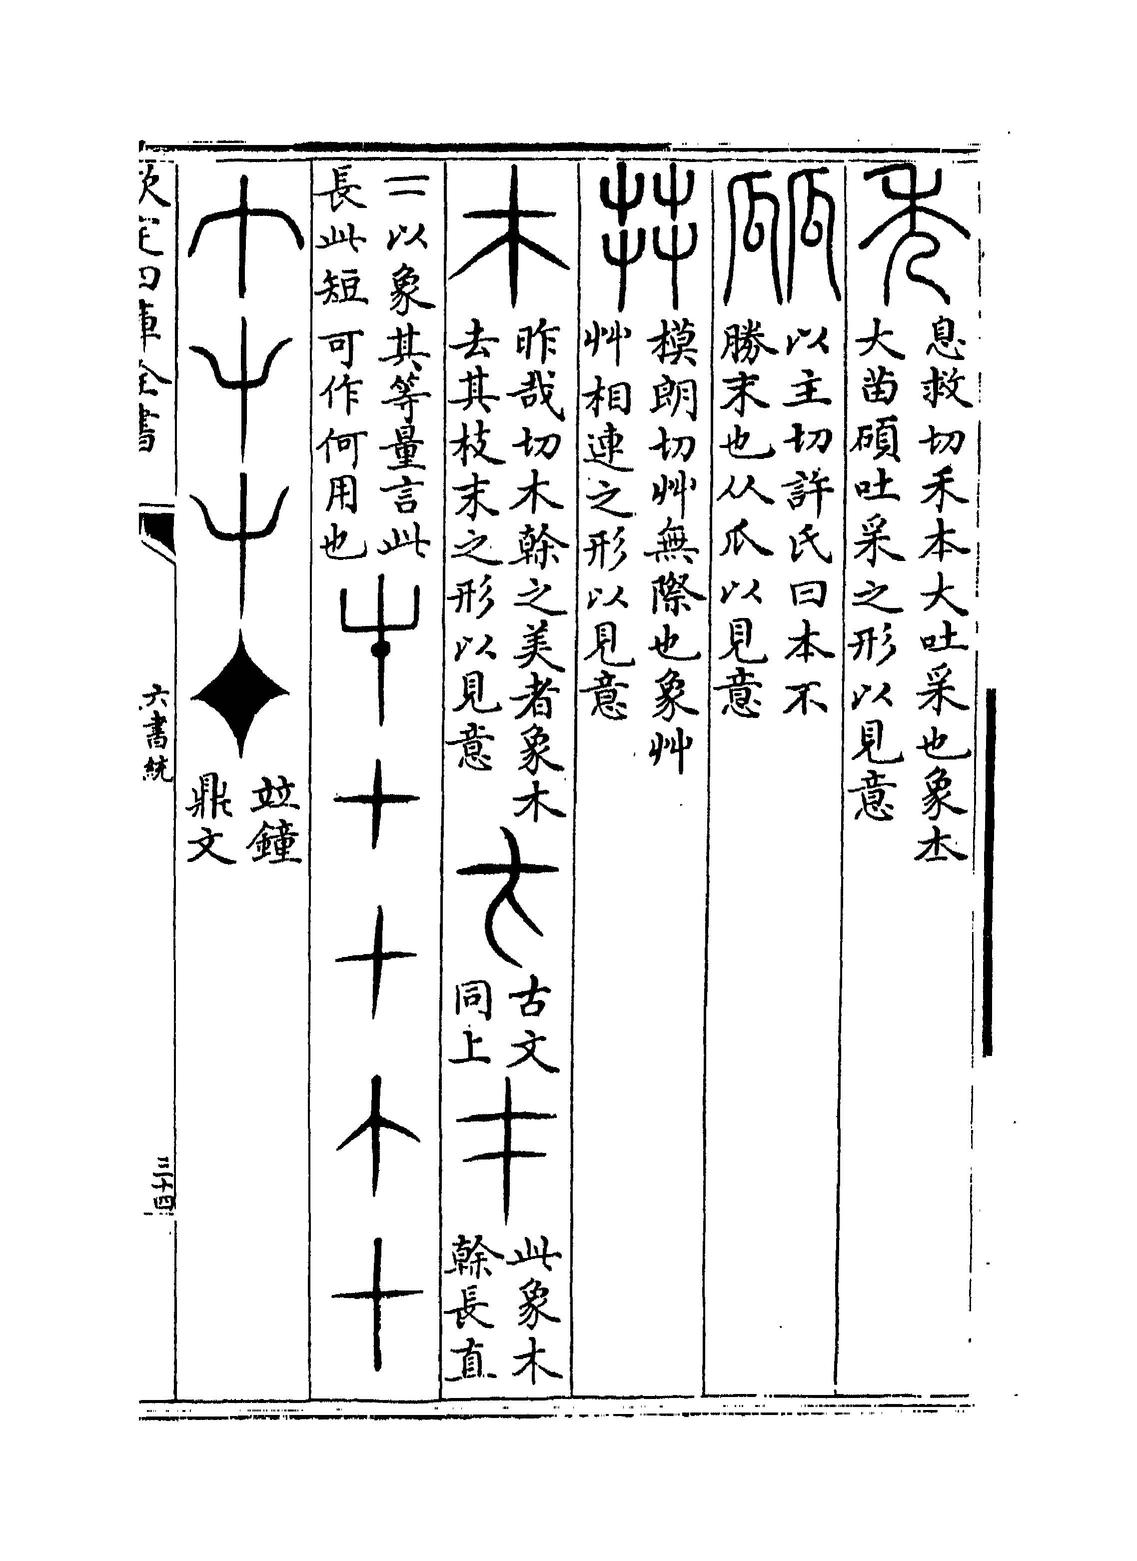 息救切禾本大吐采也象本
大苗碩吐采之形以見意
以主切許氏曰本不
勝末也从瓜以見意
模朗切艸無際也象艸
艸相連之形以見意
昨哉切木榦之美者象木
去其枝末之形以見意
古文
同上
此象木
榦長直
二以象其等量言此
長此短可作何用也
竝鐘
鼎文
欽定四庫全書
六書統
三十四